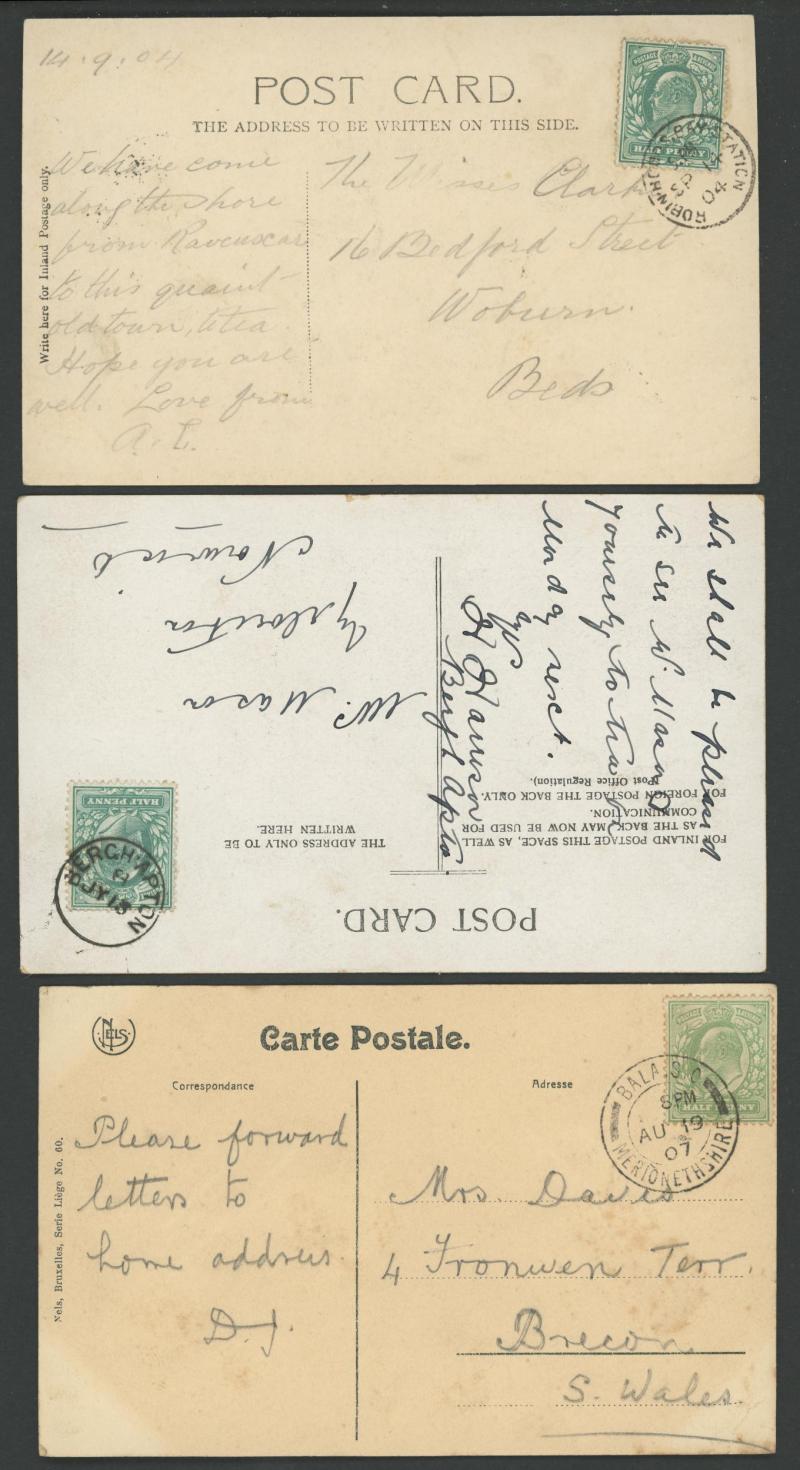 14.9.04
POST CARD.
THE ADDRESS TO BE WRITTEN ON THIS SIDE.
POSTAGE & REVENUE
HALF PENNY
ROBIN-HOODS-BAY-STATION
SP 14
04
Write here for Inland Postage only.
We have come
along the shore
from Ravenscar
to this quaint
old town, to tea
Hope you are
well. Love from
A. E.
The Misses Clark
16 Bedford Street
Woburn.
Beds
POST CARD.
FOR INLAND POSTAGE THIS SPACE, AS WELL
AS THE BACK, MAY NOW BE USED FOR
COMMUNICATION.
FOR FOREIGN POSTAGE THE BACK ONLY.
(Post Office Regulation).
THE ADDRESS ONLY TO BE
WRITTEN HERE.
HALF PENNY
BERGH-APTON
JY 15
We shall be pleased
to see W. Mason &
yourself to tea on
Monday next.
H Harrison
Bergh Apton.
Mr. Mason
Yelverton
Norwich
NELS
Carte Postale.
Correspondance
Adresse
POSTAGE & REVENUE
HALF PENNY
BALA S.O.
8 PM
AU 19
07
MERIONETHSHIRE
Nels, Bruxelles, Serie Liège No. 60.
Please forward
letters to
home address.
D.J.
Mrs. Davis
4 Fronwen Terr.
Brecon
S. Wales.